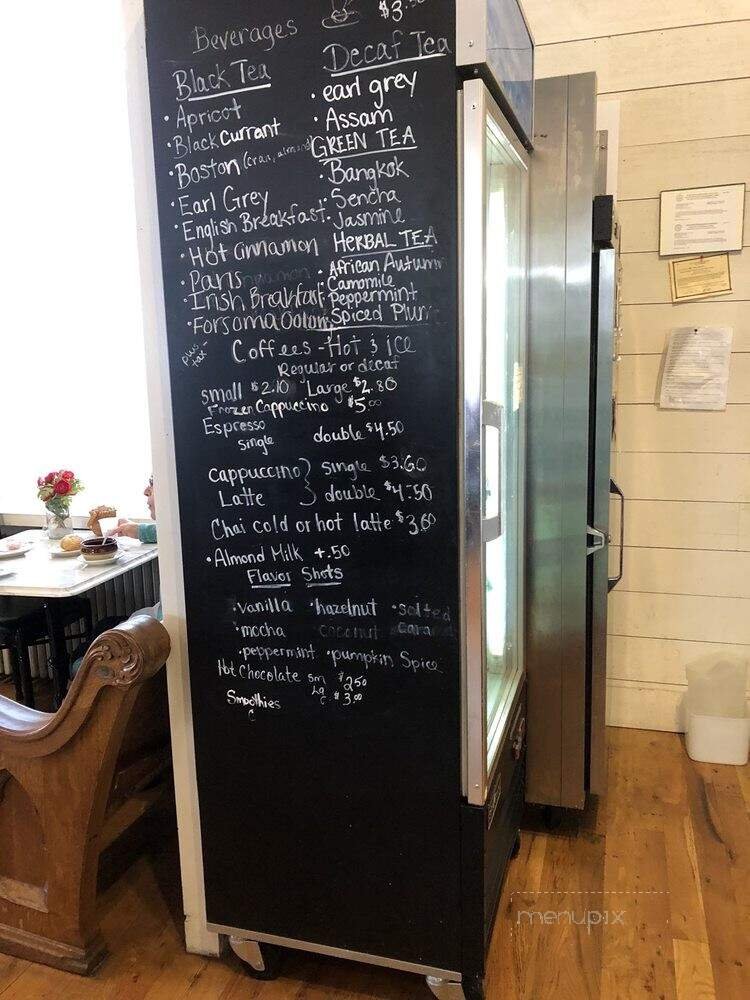 Beverages
Black Tea
• Apricot
• Black currant
• Boston (cran, almond
• Earl Grey
• English Breakfast
• Hot Cinnamon
• Paris
• Irish Breakfast
• Formosa Oolong
Decaf Tea
• earl grey
• Assam
GREEN TEA
• Bangkok
• Sencha
• Jasmine
HERBAL TEA
• African Autumn
• Camomile
• Peppermint
• Spiced Plum
plus tax -
Coffees - Hot & ice
Regular or decaf
small $2.10 Large $2.80
Frozen Cappuccino $5.00
Espresso
single double $4.50
Cappuccino } single $3.60
Latte } double $4.50
Chai cold or hot latte $3.60
• Almond Milk +.50
Flavor Shots
• vanilla • hazelnut • salted
• mocha coconut caramel
• peppermint • pumpkin Spice
Hot Chocolate sm $2.50
Lg $3.00
Smoothies
menupix